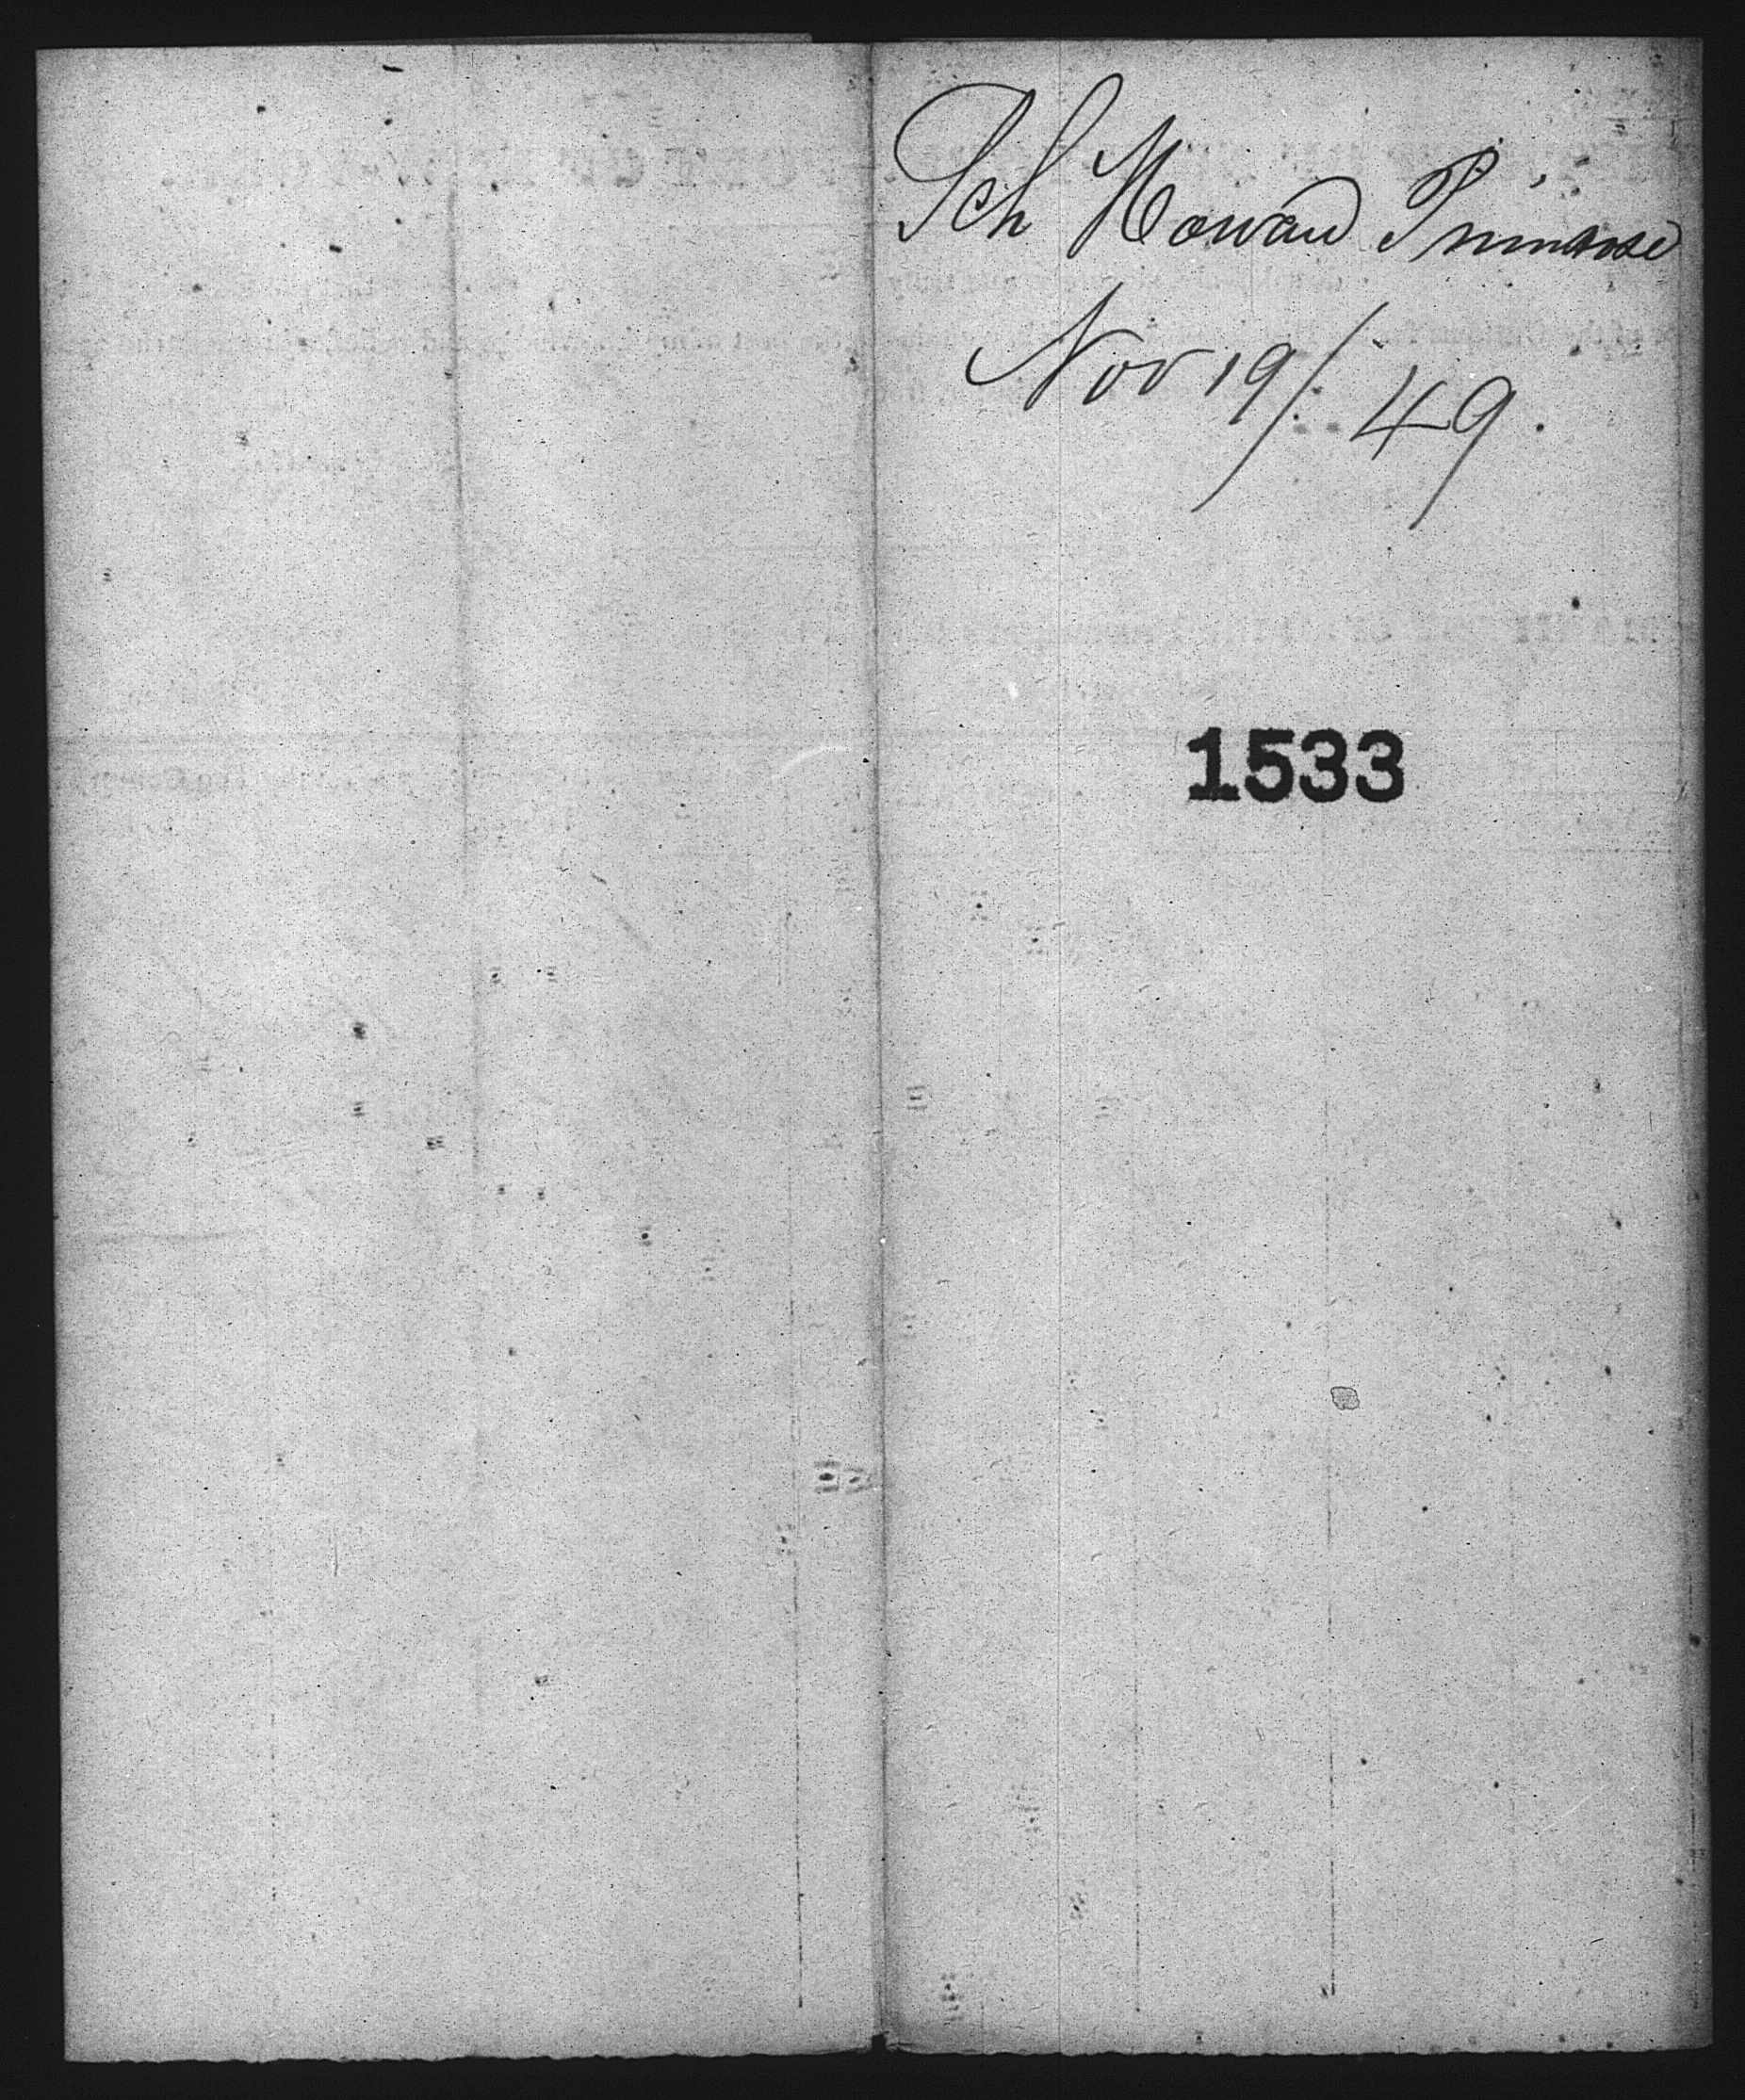 Sch Howard Primrose
Nov 19/49.
1533